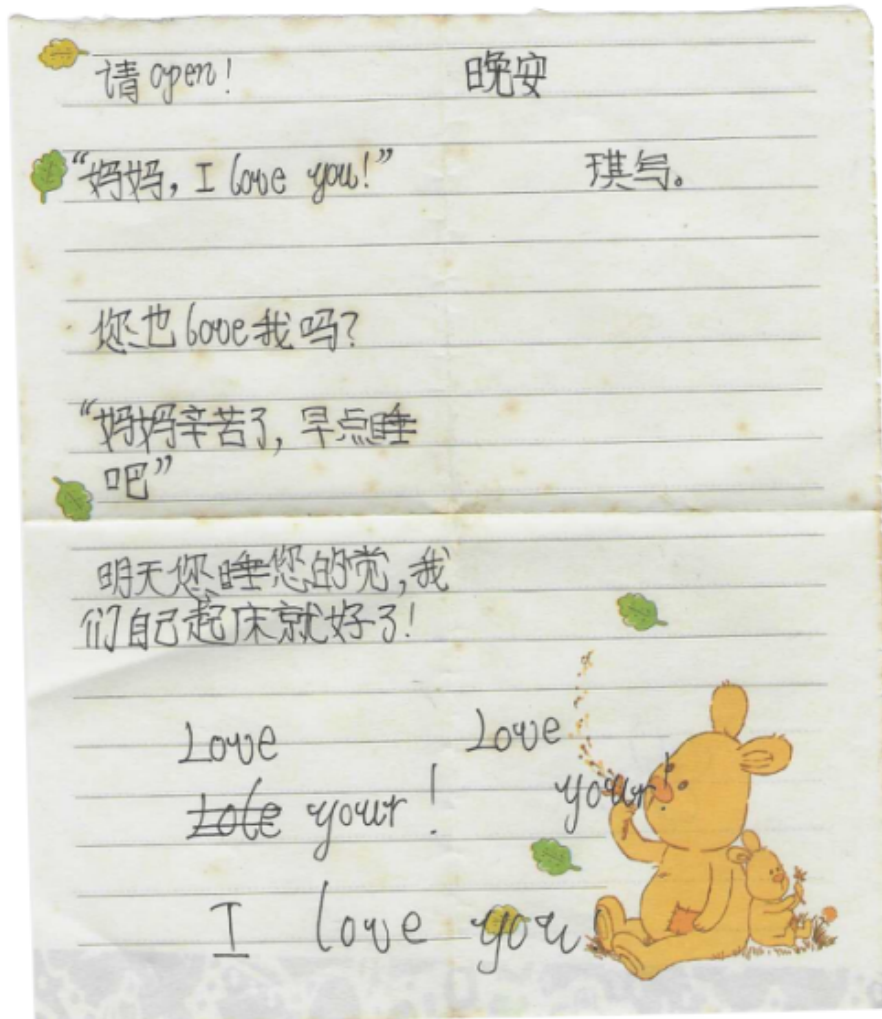 请open! 晚安
“妈妈，I love you!” 琪写。
您也love我吗?
“妈妈辛苦了，早点睡
吧”
明天您睡您的觉，我
们自己起床就好了!
Love Love
your! your!
I love you!